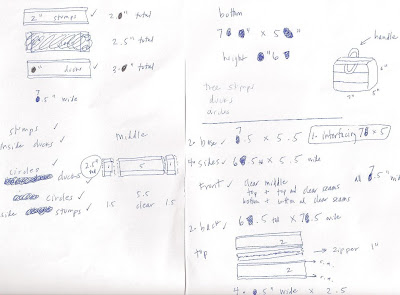 2" stumps ✓ 2.0" total
2.5" total
1.0" ducks ✓ 3.0" total
7.5" wide
stumps ✓
inside ducks ✓
circles ✓
ducks ✓
circles ✓
side stumps ✓
middle
2.5"
1 5 1
1.5 5.5 clear 1.5
bottom
7" x 5"
height 6"
handle
6"
7" 5"
tree stumps
ducks
circles
2- base ✓ 7.5 x 5.5 1- interfacing 7 x 5
4- sides ✓ 6.5 x 5.5 wide
front ✓ clear middle
top + top of clear seams
bottom + bottom of clear seams
all 7.5" wide
2- back ✓ 6.5 x 7.5 wide
top
2
2
→ zipper 1"
4- 7.5" wide x 2.5